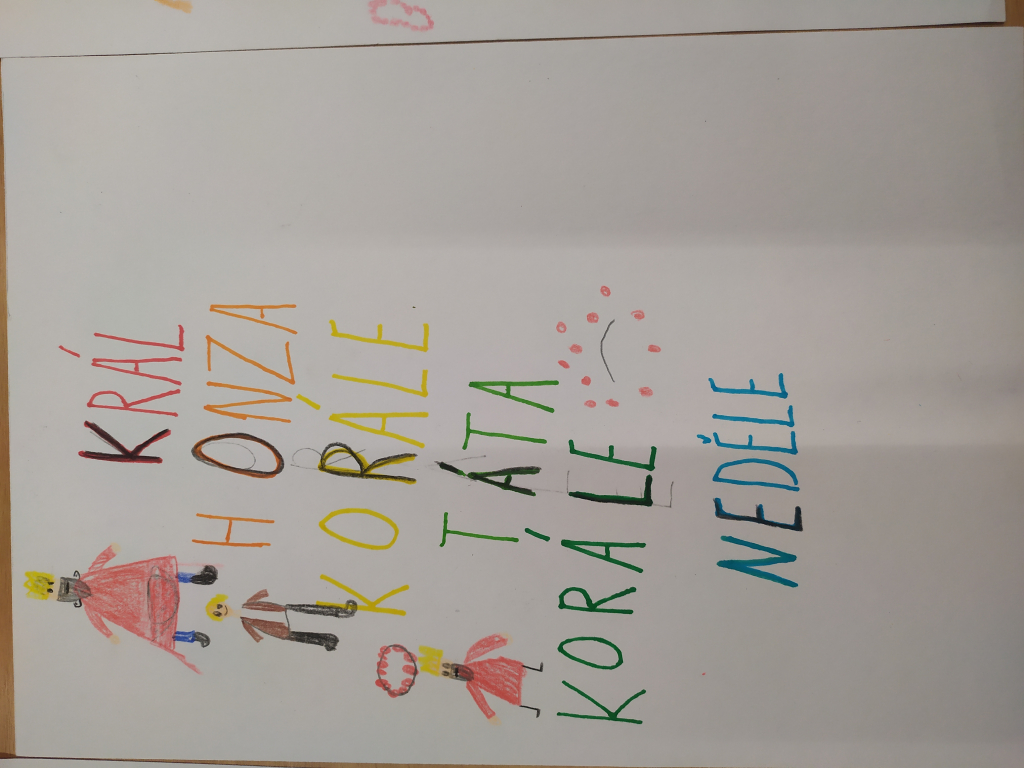 KRÁL
HONZA
KORÁLE
TÁTA
KORÁLE
NEDĚLE